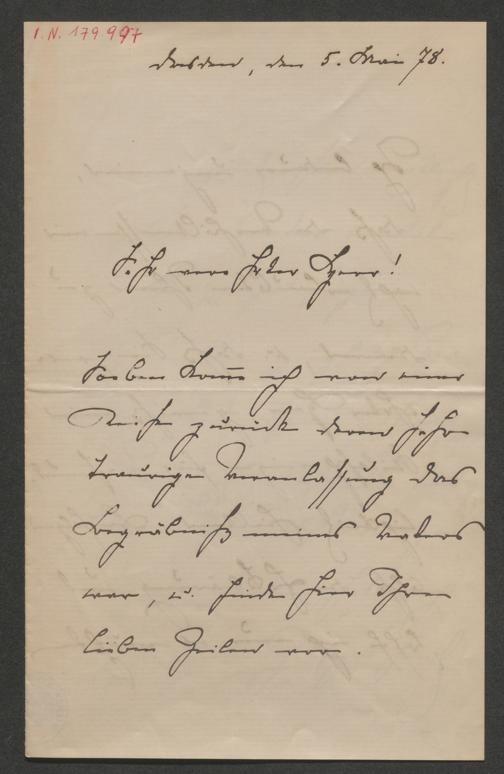 I. N. 179997
Dresden, den 5. Mai 78.
Sehr verehrter Herr!
Soeben komme ich von einer
Reise zurück deren sehr
traurige Veranlassung das
Begräbniß meines Vaters
war, u. finde hier Ihre
lieben Zeilen vor.